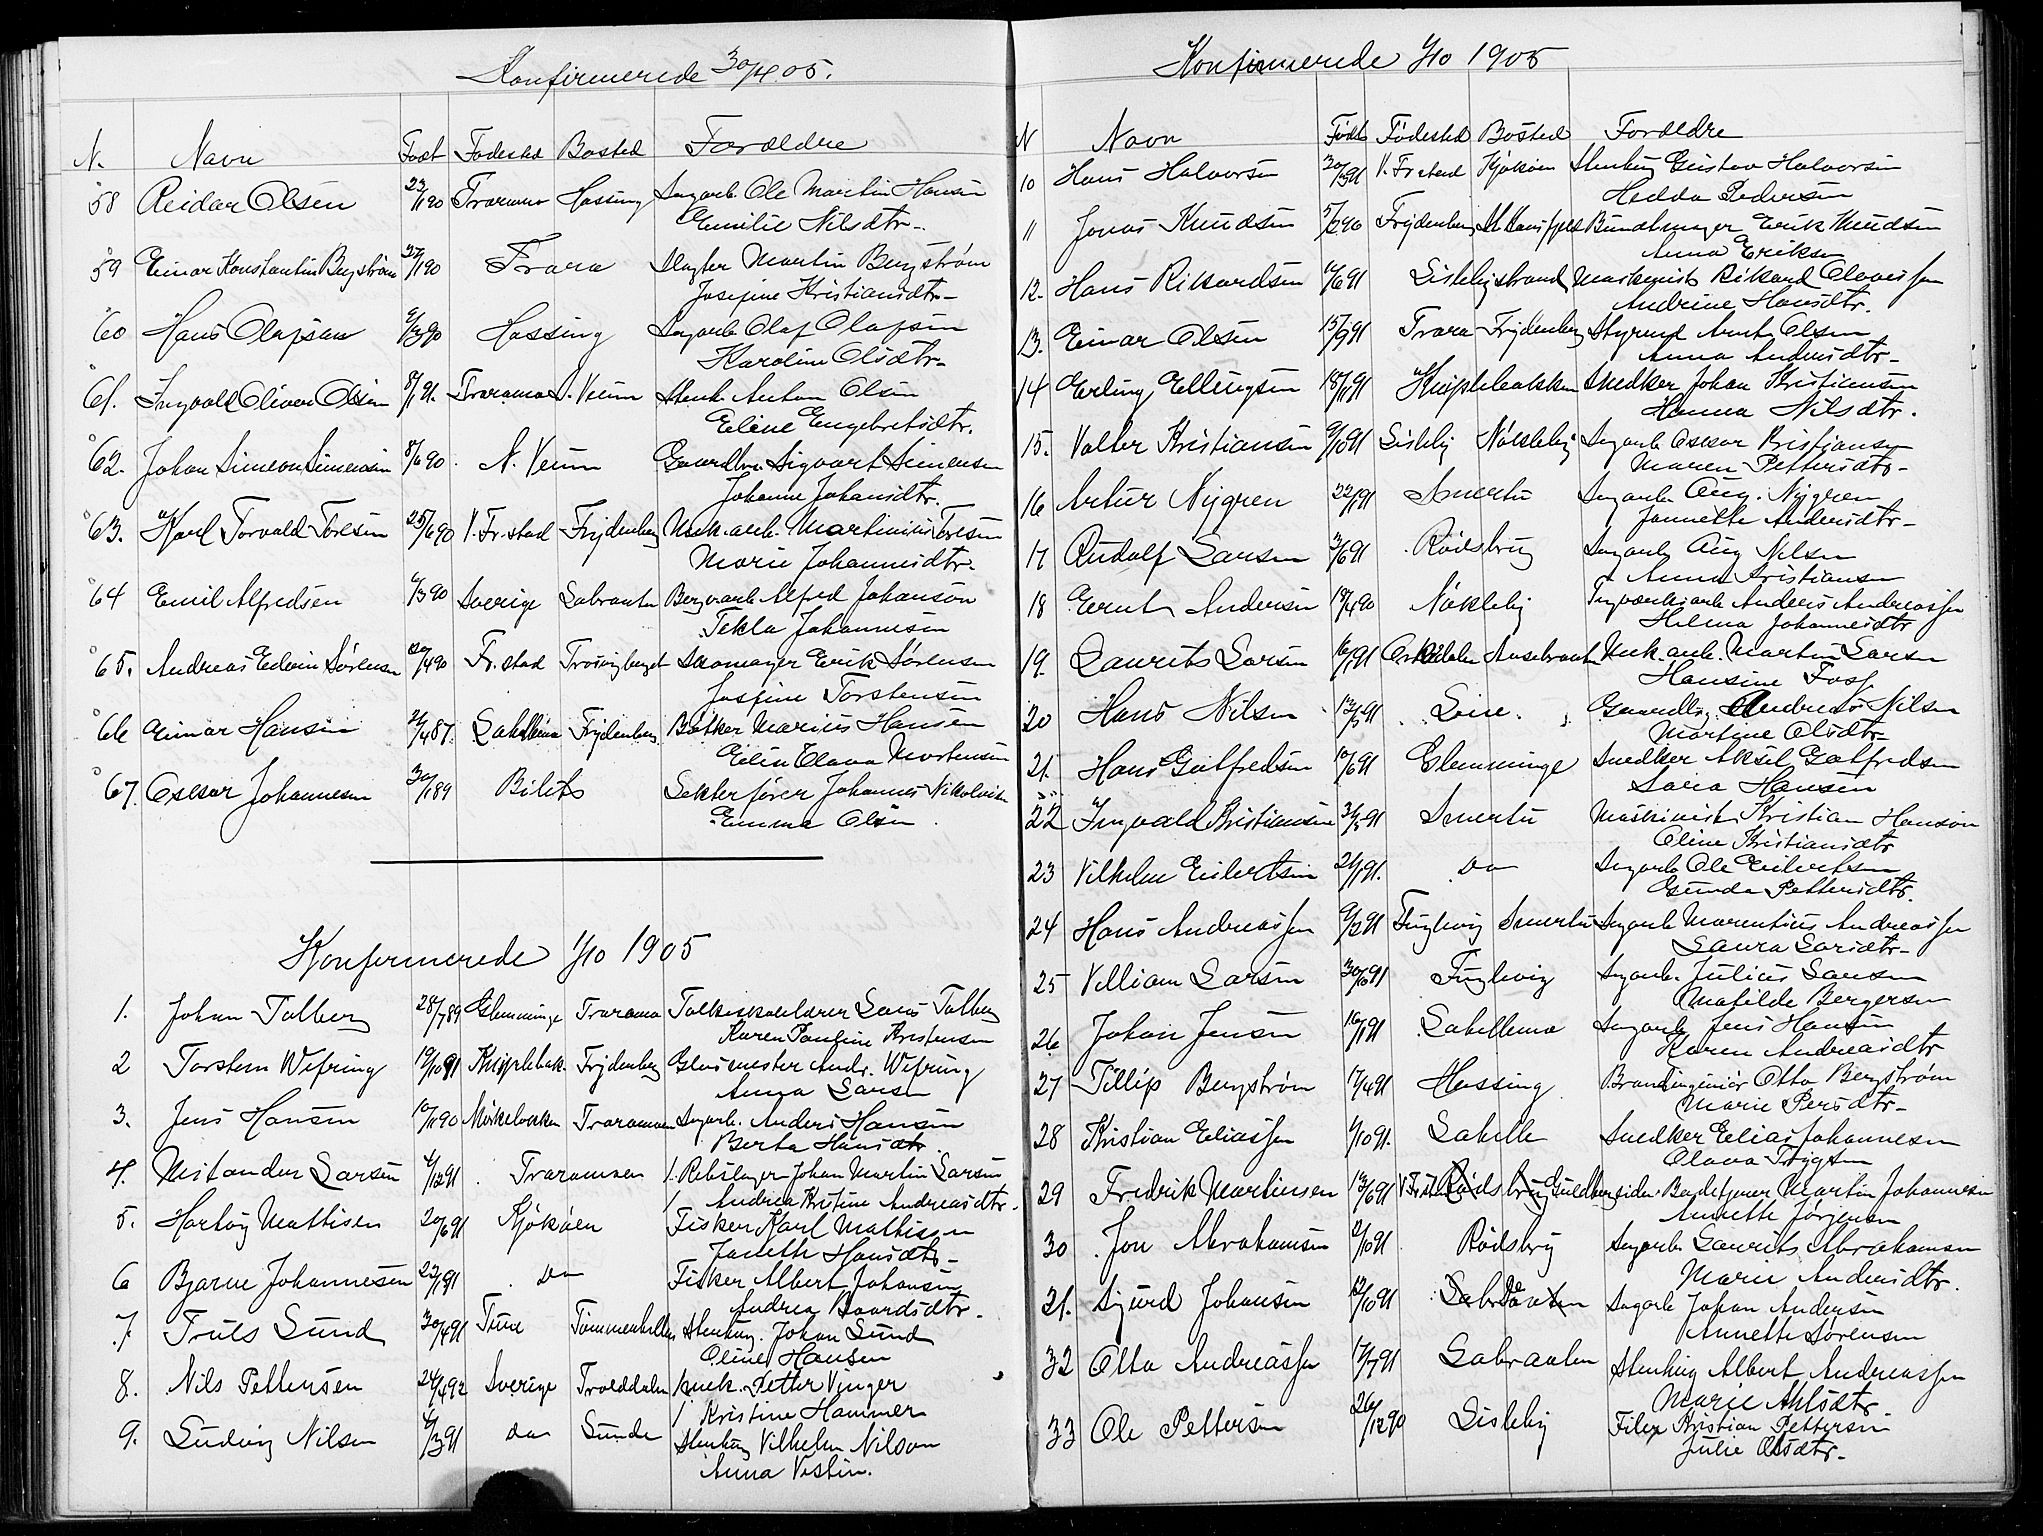 Konfirmerede 30/4 05.
N. Navn Født Fødested Bosted Forældre
58 Reidar Olsen 23/11 90 Traramo Hassing Sagarb. Ole Martin Hansen
Emilie Nilsdtr.
59 Einar Konstantin Bergstrøm 90 Trara Slagter Martin Bergstrøm
Josefine Kristiansdtr.
60 Hans Olafsen 90 Hassing Sagarb. Olaf Olafsen
Karoline Olsdtr.
61. Ingvald Oliver Olsen 8/1 91. Traramo N. Veum Stenh. Anton Olsen
Eline Engebretsdtr.
62. Johan Simeon Simensen 8/6 90. N. Veum Gaardbr. Sigvart Simensen
Johanne Johansdtr.
63. Karl Torvald Toresen 25/6 90 V. Fr.stad Frydenberg Mek. arb. Martinius Toresen
Marie Johannesdtr.
64 Emil Alfredsen 6/3 90 Sverige Labraaten Bergarb. Alfred Johanson
Tekla Johannesen
65. Andreas Edvin Sørensen 20/4 90 Fr.stad Trosvigberget Skomager Erik Sørensen
Josefine Torstensen
66 Einar Hansen 21/4 87. Labellema Frydenberg Bøtker Marius Hansen
Elin Olava Mortensen
67. Oscar Johannesen 30/1 89 Bilets Johannes Nikolaisen
Emma Olsen
Konfirmerede 1/10 1905
1. Johan Tolberg 28/7 89 Glemminge Traramo Folkeskolelærer Lars Tolberg
Karen Pauline Kristensen
2 Torstein Wefring 19/10 91 Kniplebak. Frydenberg Glasmester Andr. Wefring
Anna Larsen
3. Jens Hansen 10/11 90 Mørkebakken Traramoen Sagarb. Anders Hansen
Berta Hansdtr.
4. Nistander Larsen 4/12 91 Traramoen Rebslager Johan Martin Larsen
Andrea Kristine Andreasdtr.
5. Hartvig Mattisen 20/6 91 Kjøkøen Fisker Karl Mattisen
Janette Hansdtr.
6 Bjarne Johannesen 23/1 91 Do Fisker Albert Johansen
Andrea Baardsdtr.
7. Truls Sund 30/4 91 Tune Tømmerhella Stenhug. Johan Sund
Oline Hansen
8. Nils Pettersen 24/4 92 Sverige Trolddalen snek. Petter Vinger
Kristine Hammer
9. Ludvig Nilsen 4/3 91 do Sunde Stenhug Vilhelm Nilson
Anna Vestin.
Konfirmerede 1/10 1905
N Navn Født Fødested Bosted Forældre
10 Hans Halvorsen 91 V. Fr.stad Kjøkøen Stenhug Gustav Halvorsen
Hedda Pedersen
11 Jonas Knudsen 5/2 90 Frydenberg Bundtmager Erik Knudsen
Anna Eriksen
12. Hans Rikardsen 91 Lislebystrand Maskinist Rikard Olavessen
Andrine Hansdtr.
13. Einar Olsen 15/9 91 Trara Frydenberg Styrmd Arnt Olsen
Anna Andersdtr.
14 Erling Ellingsen 18/11 91 Kniplebakken Snedker Johan Kristiansen
Hanna Nilsdtr.
15. Valter Kristiansen 9/10 91 Lisleby Nøkleby Sagarb. Oscar Kristiansen
Maren Pettersdtr.
16 Artur Nygren 22/1 91 Smertu Sagarb. Aug. Nygren
Jannette Andersdtr.
17 Rudolf Larsen 3/6 91 Rødsbryg Sagarb. Aug Nilsen
Anna Kristiansen
18 Ernt Andersen 18/4 90 Nøkleby Anders Andreassen
Hilma Johannesdtr
19. Laurits Larsen 16/7 91 Mek. arb. Martin Larsen
Hansine Foss
20 Hans Nilsen 13/5 91 Leie Gaardbr. Andreas Nilsen
Martine Olsdtr.
21. Hans Gotfredsen 10/6 91 Glemminge Snedker Aksel Gotfredsen
Lova Hansen
22 Ingvald Kristiansen 31/5 91 Smertu Maskinist Kristian Hanson
Oline Kristiansdtr
23 Vilhelm Eilertsen 21/1 91. do Sagarb Ole Eilertsen
Gunda Pettersdtr.
24 Hans Andreassen 9/2 91 Fuglevig Smertu Sagarb Marentius Andreassen
Laura Larsdtr.
25 Villiam Larsen 30/10 91 Fuglevig Sagarb. Julius Larsen
Matilde Bergersen
26 Johan Jensen 16/1 91 Labellemo Sagarb Jens Hansen
Karen Andreasdtr
27 Fillip Bergstrøm 17/4 91 Hassing Brandingeniør Otto Bergstrøm
Marie Persdtr.
28 Kristian Eliassen 1/10 91. Labelle Snedker Elias Johannesen
Olava Trygsen
29 Fredrik Martinsen 13/6 91 V. Fr.stad Rødsbryg Guldbergsiden Martin Johannesen
Annette Jørgensen
30 Jon Abrahamsen 2/10 91 Rødsbryg Sagarb Laurits Abrahamsen
Marie Andersdtr.
31. Sigurd Johansen 12/10 91 Labraaten Do Sagarb Johan Andersen
Annette Sørensen
32 Otto Andreassen 17/7 91 Labraaten Stenhug Albert Andreassen
Marie Ahlsdtr.
33 Ole Pettersen 26/12 90 Lisleby Filer Kristian Pettersen
Julie Olsdtr.